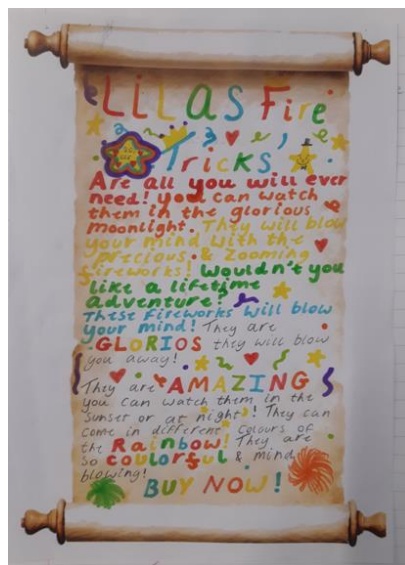 LiLAS Fire
Tricks
Are all you will ever
need! you can watch
them in the glorious
moonlight. They will blow
your mind with the
precious & zooming
fireworks! Wouldn't you
like a lifetime
adventure?
These fireworks will blow
your mind! They are
GLORIOS they will blow
you away!
They are AMAZING
you can watch them in the
sunset or at night! They can
come in different colours of
the Rainbow! They are
so coulorful & mind
blowing!
BUY NOW!